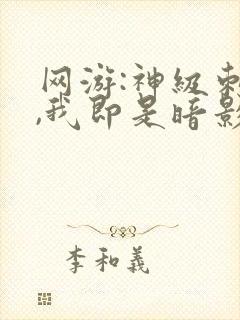 网游:神级刺
,我即是暗影
李和义